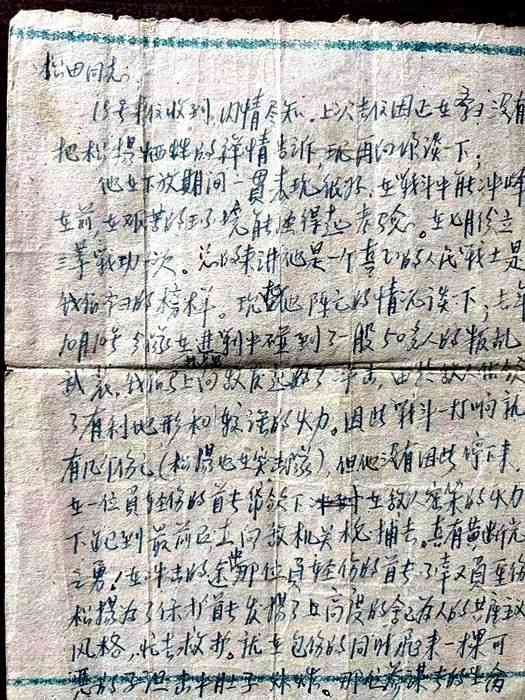 松田同志:
15号来信收到,内情尽知。上次去信因正在学习没有
把松授牺牲的详情告诉,现再向你谈一下;
他在下放期间一贯表现很好,在战斗中能冲锋
在前,在艰苦的环境能经得起考验。在七月份立
三等战功一次。总的来讲他是一个真正的人民战士是
我们学习的榜样。现把他阵亡的情况谈一下;去年
10月10号 今家在进剿中碰到了一股50余人的叛乱
武装,我们马上向敌发起了冲击,由于敌人占领
了有利地形和较强的火力。因此战斗一打响就
有几个伤亡(松授也在突击队),但他没有因此停下来,
在一位负轻伤的首长带领下 在敌人密集的火力
下跑到最前区去向敌机关枪捕去。真有黄继光
之勇!在冲击的途中那位负轻伤的首长了幸又负重伤
松授为了保护首长发扬了高度的舍己为人的共产主义
风格,忙去救护。就在包伤的同时飞来一棵可
恶的子弹击中肚子